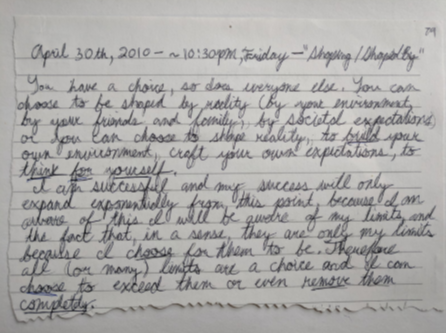 April 30th, 2010 - ~10:30pm, Friday - "Shaping/Shaped By"
You have a choice, so does everyone else. You can
choose to be shaped by reality (by your environment,
by your friends and family), by societal expectations,
or you can choose to shape reality, to build your
own environment, craft your own expectations, to
think for yourself.
I am successful and my success will only
expand exponentially from this point, because I am
aware of this I will be aware of my limits, and
the fact that, in a sense, they are only my limits
because I choose for them to be. Therefore
all (or many) limits are a choice and I can
choose to exceed them or even remove them
completely.